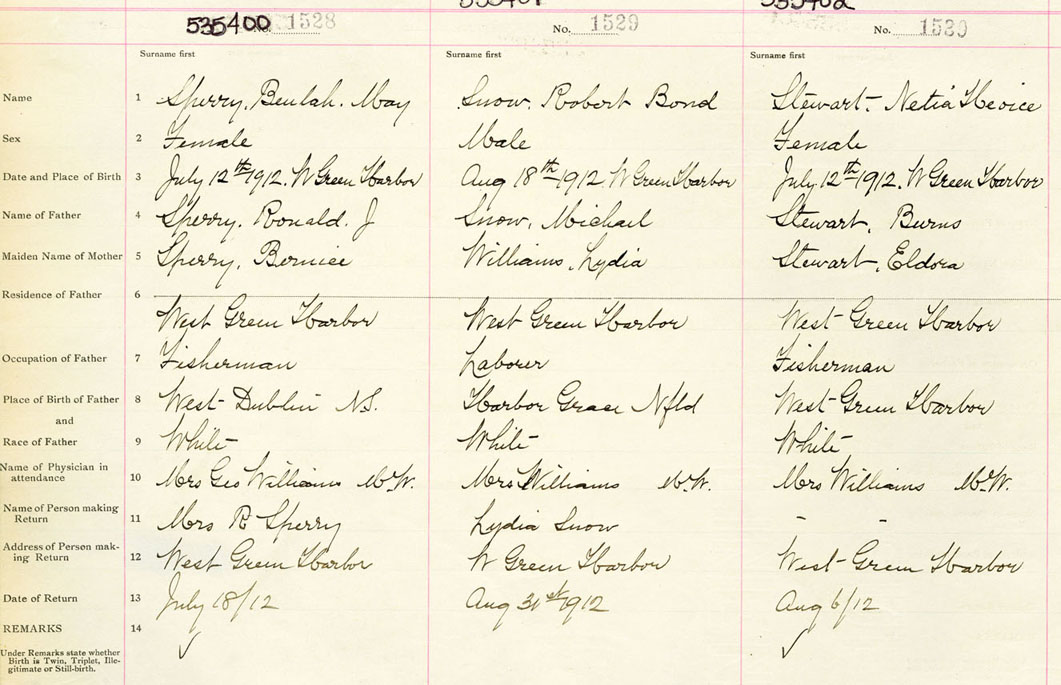 535400 No. 1528 No. 1529 No. 1530
Surname first Surname first Surname first
Name 1 Sperry, Beulah. May Snow. Robert Bond Stewart - Netia
Sex 2 Female Male Female
Date and Place of Birth 3 July 12th 1912. W Green Harbor Aug 18th 1912 W Green Harbor July 12th 1912. W Green Harbor
Name of Father 4 Sperry. Ronald. J Snow, Michael Stewart, Burns
Maiden Name of Mother 5 Sperry, Bernice Williams, Lydia Stewart, Eldora
Residence of Father 6
West Green Harbor West Green Harbor West Green Harbor
Occupation of Father 7 Fisherman Laborer Fisherman
Place of Birth of Father 8 West Dublin N.S. Harbor Grace Nfld West Green Harbor
and
Race of Father 9 White White White
Name of Physician in
attendance 10 Mrs Geo Williams M.W. Mrs Williams M.W. Mrs Williams M.W.
Name of Person making
Return 11 Mrs R Sperry Lydia Snow - -
Address of Person mak-
ing Return 12 West Green Harbor W Green Harbor West Green Harbor
Date of Return 13 July 18/12 Aug 31st 1912 Aug 6/12
REMARKS 14
Under Remarks state whether
Birth is Twin, Triplet, Ille-
gitimate or Still-birth.